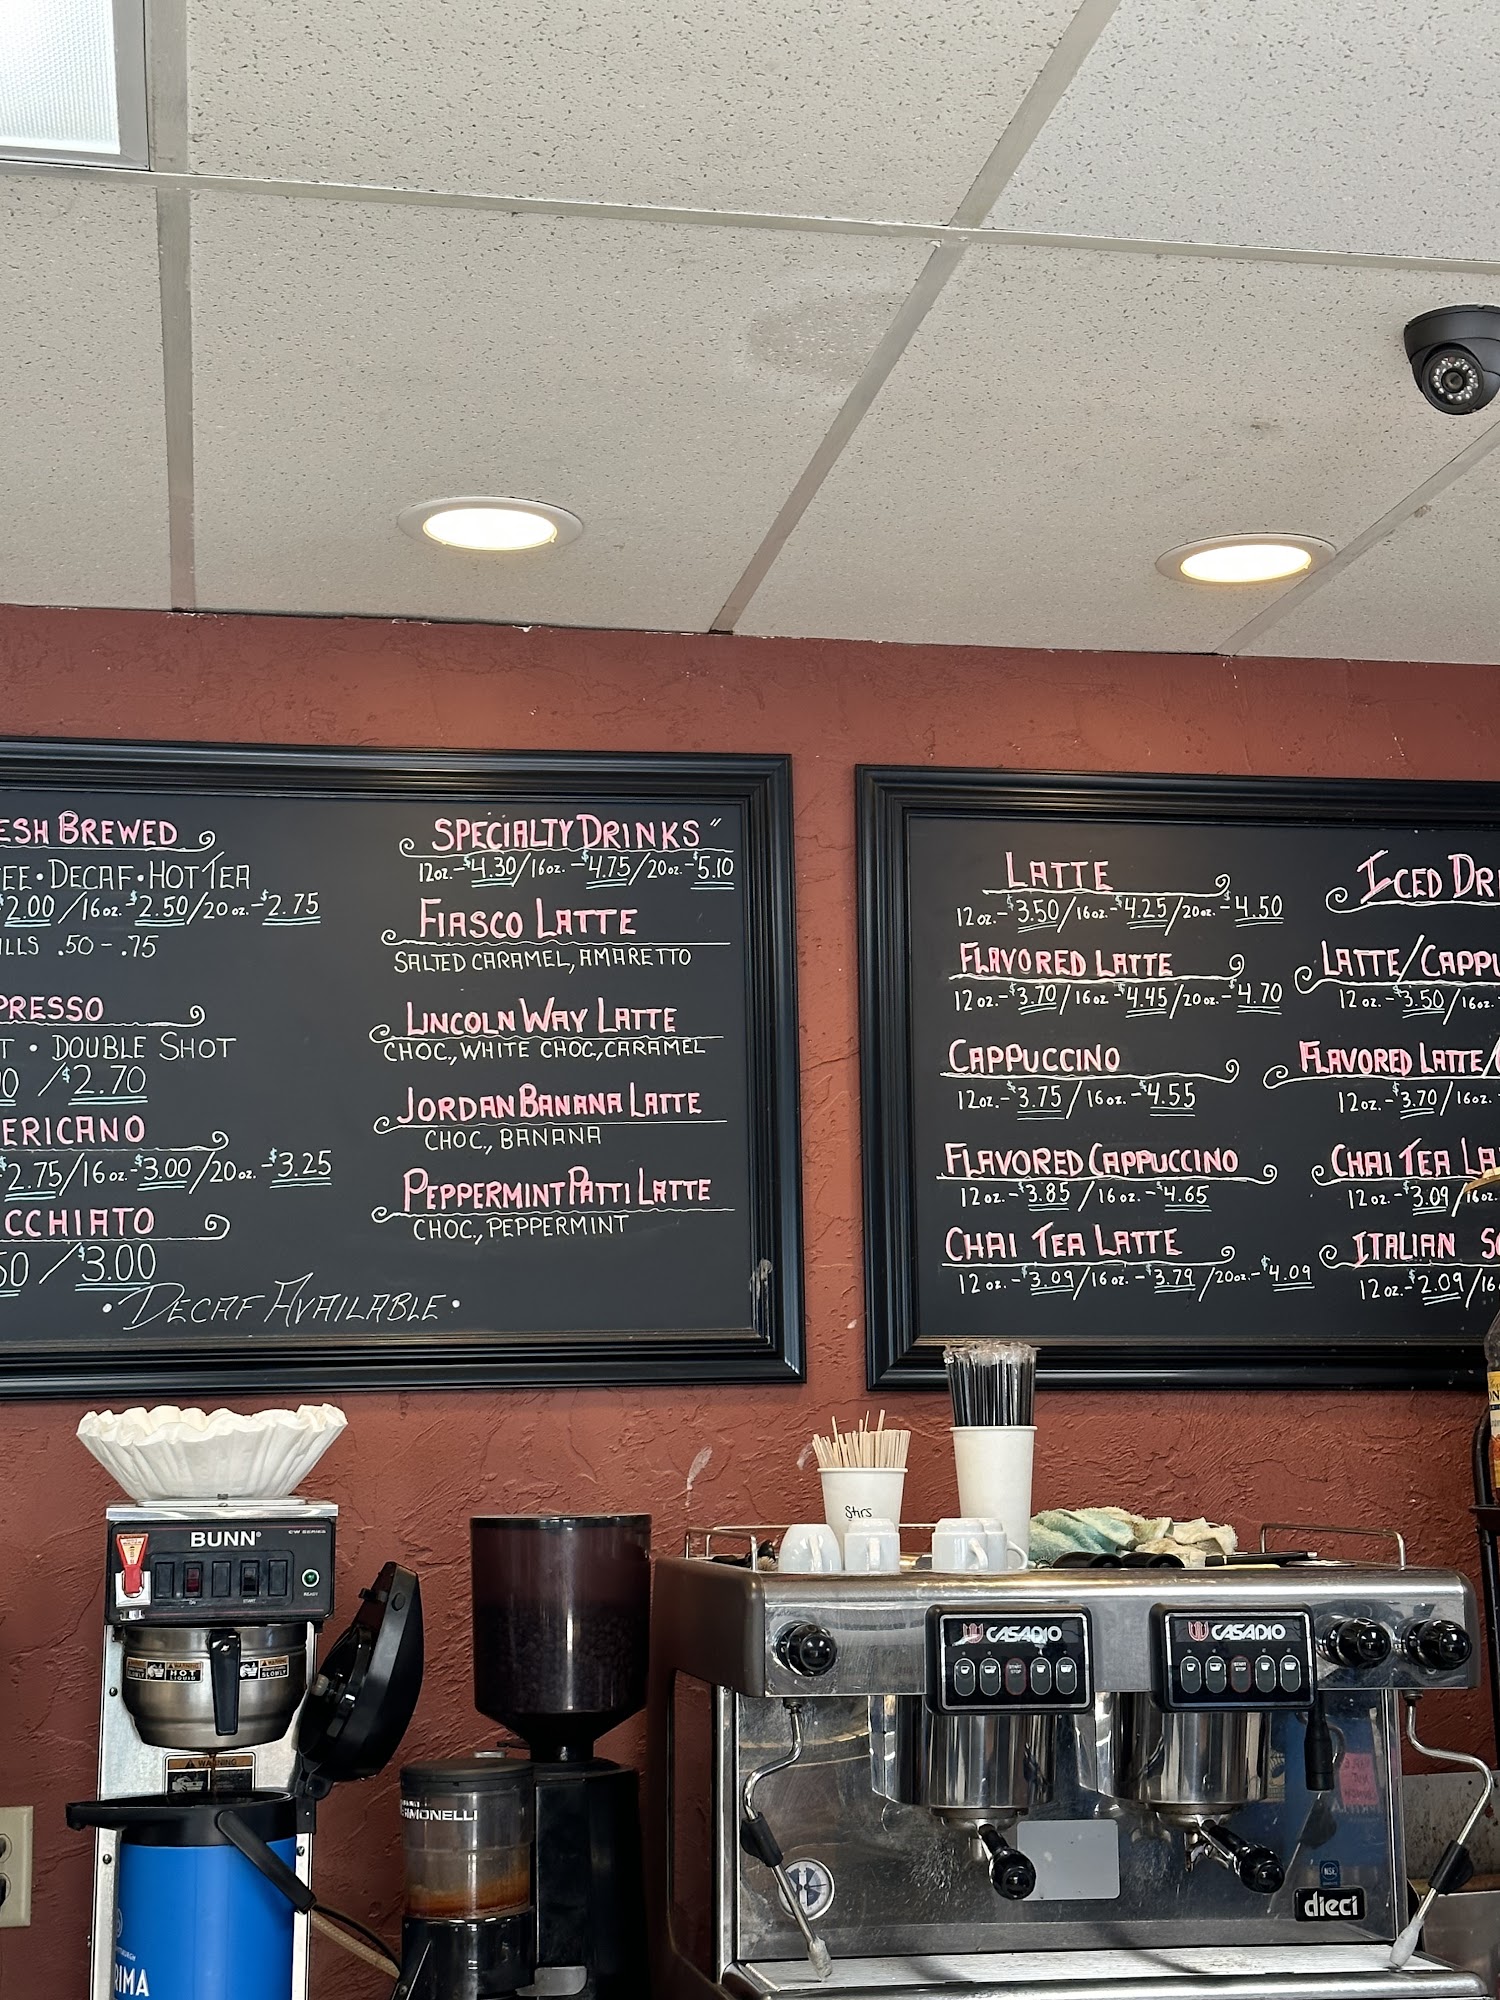 ESH BREWED
EE • DECAF • HOT TEA
$2.00 / 16 oz. - $2.50 / 20 oz. - $2.75
LLS .50 - .75
PRESSO
T • DOUBLE SHOT
0 / $2.70
ERICANO
$2.75 / 16 oz. - $3.00 / 20 oz. - $3.25
CCHIATO
50 / $3.00
• DECAF AVAILABLE •
SPECIALTY DRINKS"
12oz. - $4.30 / 16oz. - $4.75 / 20oz. - $5.10
FIASCO LATTE
SALTED CARAMEL, AMARETTO
LINCOLN WAY LATTE
CHOC., WHITE CHOC, CARAMEL
JORDAN BANANA LATTE
CHOC., BANANA
PEPPERMINT PATTI LATTE
CHOC., PEPPERMINT
LATTE
12 oz. - $3.50 / 16oz. - $4.25 / 20oz. - $4.50
FLAVORED LATTE
12 oz. - $3.70 / 16 oz - $4.45 / 20oz. - $4.70
CAPPUCCINO
12oz. - $3.75 / 16oz. - $4.55
FLAVORED CAPPUCCINO
12oz. - $3.85 / 16oz. - $4.65
CHAI TEA LATTE
12 oz. - $3.09 / 16oz. - $3.79 / 20oz. - $4.09
ICED DRI
LATTE/CAPPU
12oz. - $3.50 / 16oz.
FLAVORED LATTE/
12oz. - $3.70 / 16oz.
CHAI TEA LA
12oz. - $3.09 / 16oz.
ITALIAN S
12oz. - $2.09 / 16
Stirs
BUNN®
CW SERIES
READY
ON
START
WARNING
HOT
LIQUID
SLOWLY
WARNING
IMONELLI
RIMA
CASADIO
START
STOP
CASADIO
START
STOP
NSF
dieci